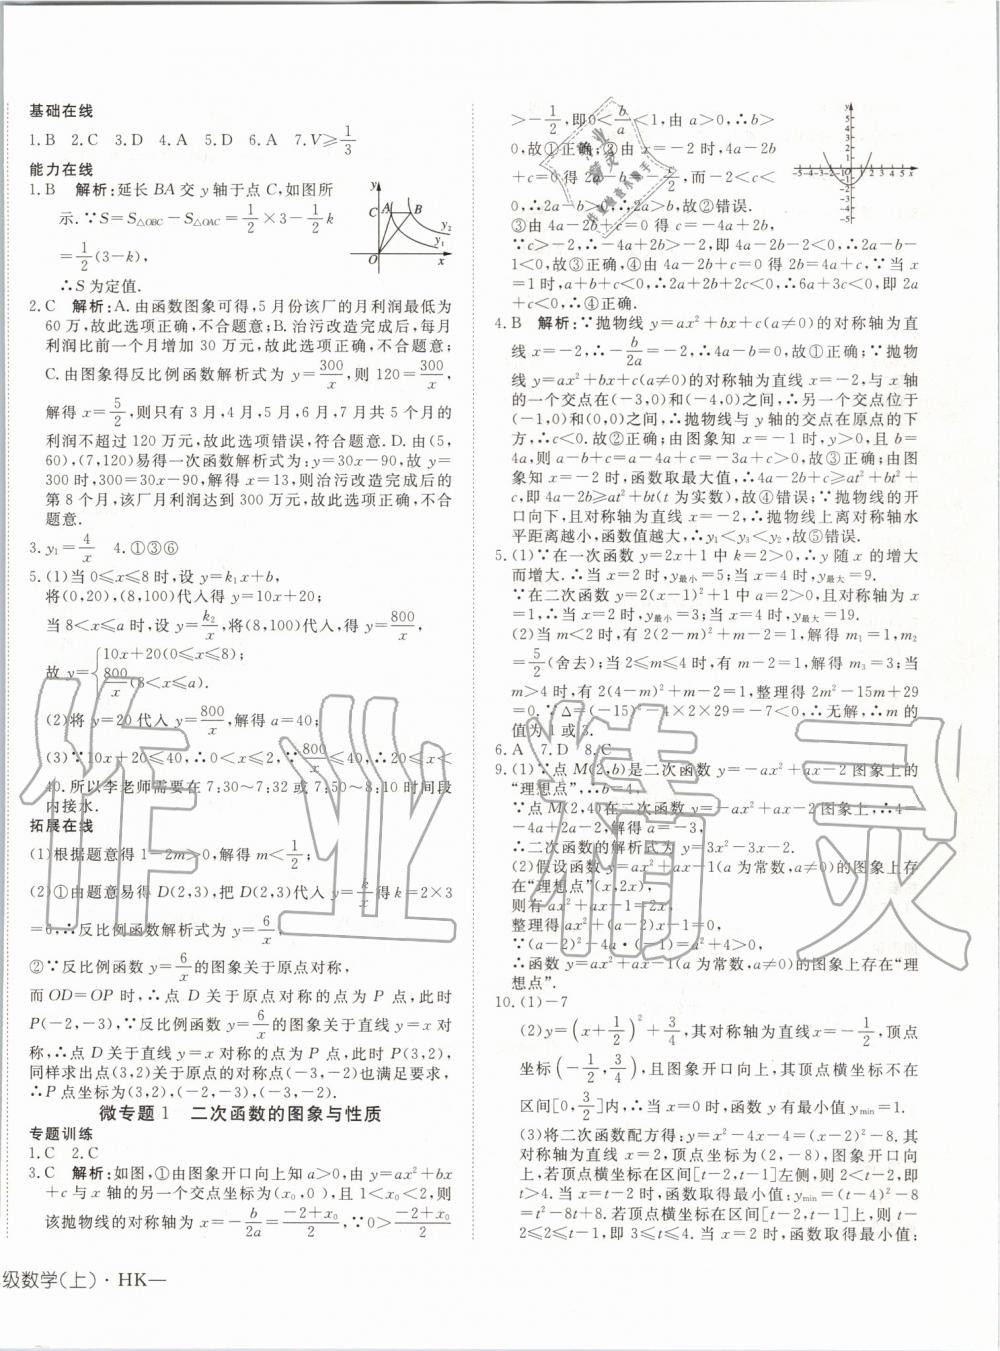 基础在线
1.B 2.C 3.D 4.A 5.D 6.A 7.V≥1/3
能力在线
1.B 解析:延长 BA 交 y 轴于点 C,如图所
示.∵S=S△OBC-S△OAC=1/2×3-1/2k
=1/2(3-k),
∴S 为定值.
y
C A B
y₂
y₁
O x
2.C 解析:A. 由函数图象可得,5 月份该厂的月利润最低为
60 万,故此选项正确,不合题意;B. 治污改造完成后,每月
利润比前一个月增加 30 万元,故此选项正确,不合题意;
C.由图象得反比例函数解析式为 y=300/x,则 120=300/x,
解得 x=5/2,则只有 3 月,4 月,5 月,6 月共 5 个月的
利润不超过 120 万元,故此选项错误,符合题意. D. 由(5,
60),(7,120)易得一次函数解析式为:y=30x-90,故 y=
300 时,300=30x-90,解得 x=13,则治污改造完成后的
第 8 个月,该厂月利润达到 300 万元,故此选项正确,不合
题意.
3. y₁=4/x 4.①③⑥
5.(1)当 0≤x≤8 时,设 y=k₁x+b,
将(0,20),(8,100)代入得 y=10x+20;
当 8<x≤a 时,设 y=k₂/x,将(8,100)代入,得 y=800/x,
故 y={10x+20(0≤x≤8);
800/x(8<x≤a).
(2)将 y=20 代入 y=800/x,解得 a=40;
(3)∵10x+20≤40,∴0<x≤2,∵800/x≤40,∴20≤x<
40.所以李老师需要在 7:30~7:32 或 7:50~8:10 时间段
内接水.
拓展在线
(1)根据题意得 1-2m>0,解得 m<1/2;
(2)①由题意易得 D(2,3),把 D(2,3)代入 y=k/x得 k=2×3
=6,∴反比例函数解析式为 y=6/x;
②∵反比例函数 y=6/x的图象关于原点对称,
而 OD=OP 时,∴点 D 关于原点对称的点为 P 点,此时
P(-2,-3),∵反比例函数 y=6/x的图象关于直线 y=x 对
称,∴点 D 关于直线 y=x 对称的点为 P 点,此时 P(3,2),
同样求出点(3,2)关于原点的对称点(-3,-2)也满足
∴P 点坐标为(3,2),(-2,-3),(-3,-2).
微专题 1 二次函数的图象与性质
专题训练
1.C 2.C
3.C 解析:如图,①由图象开口向上知 a>0,由 y=ax²+bx
+c 与 x 轴的另一个交点坐标为(x₀,0),且 1<x₀<2,则
该抛物线的对称轴为 x=-b/2a=(-2+x₀)/2,∵0>(-2+x₀)/2
级数学(上)·HK—
>-1/2,即0<b/a<1,由 a>0,∴b>
0,故①正确;②由 x=-2 时,4a-2b
而-2<c<
0,∴2a-b>0,故②错误.
③由 4a-2b+c=0 得 c=-4a+2b,
∵c>-2,∴-4a+2b>-2,即 4a-2b-2<0,∴2a-b-
1<0,故③正确,④由 4a-2b+c=0 得 c=-4a+2b,∵当 x
=1时,a+b+c>0,∴2a+2b+2c>0,∴6a+3c>0,即 2a
+c>0,∴④正确.
4.B 解析:∵抛物线 y=ax²+bx+c(a≠0)的对称轴为直
线 x=-2,∴-b/2a=-2,∴4a-b=0,故①正确;∵抛物
线 y=ax²+bx+c(a≠0)的对称轴为直线 x=-2,与 x 轴
的一个交点在(-3,0)和(-4,0)之间,∴另一个交点位于
(-1,0)和(0,0)之间,∴抛物线与 y 轴的交点在原点的下
方,∴c<0.故②正确;由图象知 x=-1 时,y>0,且 b=
4a,则 a-b+c=a-4a+c=-3a+c>0,故③正确;由图
象知 x=-2 时,函数取最大值,∴4a-2b+c≥at²+bt+
c,即 4a-2b≥at²+bt(t 为实数),故④错误;∵抛物线的开
口向下,且对称轴为直线 x=-2,∴抛物线上离对称轴水
平距离越小,函数值越大,∴y₁<y₃<y₂,故⑤错误.
5.(1)∵在一次函数 y=2x+1 中 k=2>0,∴y 随 x 的增大
而增大.∴当 x=2 时,y最小=5;当 x=4 时,y最大=9.
∵在二次函数 y=2(x-1)²+1 中 a=2>0,且对称轴为 x
=1,∴当 x=2 时,y最小=3;当 x=4 时,y最大=19.
(2)当 m<2 时,有 2(2-m)²+m-2=1,解得 m₁=1,m₂
=5/2(舍去);当 2≤m≤4 时,有 m-2=1,解得 m₃=3;当
m>4 时,有 2(4-m)²+m-2=1,整理得 2m²-15m+29
=0.∵Δ=(-15)²-4×2×29=-7<0,∴无解,∴m 的
值为 1 或 3.
6.A 7.D 8.C
9.(1)∵点 M(2,b)是二次函数 y=-ax²+ax-2图象上的
“理想点”,∴b=4,
∵点 M(2,4)在二次函数 y=-ax²+ax-2图象上,∴4=
-4a+2a-2,解得 a=-3,
∴二次函数的解析式为 y=3x²-3x-2.
(2)假设函数 y=ax²+ax-1(a 为常数,a≠0)的图象上存
在“理想点”(x,2x),
则有 ax²+ax-1=2x,
整理得 ax²+(a-2)x-1=0,
∵(a-2)²-4a·(-1)=a²+4>0,
∴函数 y=ax²+ax-1(a 为常数,a≠0)的图象上存在“理
想点”.
10.(1)-7
(2)y=(x+1/2)²+3/4,其对称轴为直线 x=-1/2,顶点
坐标(-1/2,3/4),且图象开口向上,其顶点横坐标不在
区间[0,2]内.当 x=0 时,函数 y 有最小值 ymin=1.
(3)将二次函数配方得:y=x²-4x-4=(x-2)²-8.其
对称轴为直线 x=2,顶点为(2,-8),图象开口向上,①
若顶点横坐标在区间[t-2,t-1]左侧,则 2<t-2,即
t>4.当 x=t-2 时,函数取得最小值:ymin=(t-4)²-8
=t²-8t+8.②若顶点横坐标在区间[t-2,t-1]上,则 t-
2≤2≤t-1,即 3≤t≤4.当 x=2 时,函数取得最小值:
作业精灵